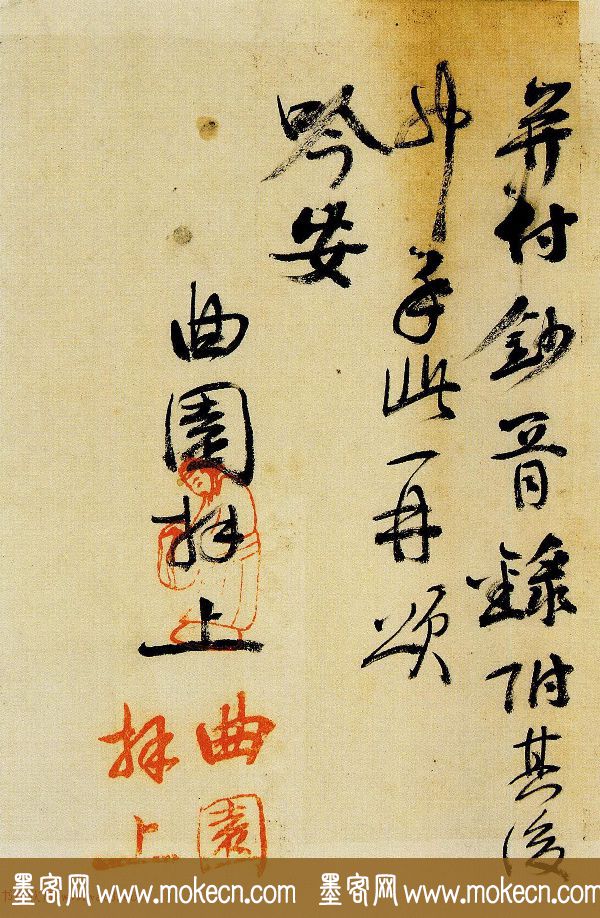 并付鈔胥錄附其後
也手此再頌
吟安
曲園拜上
曲園
拜上
墨客网 www.mokecn.com 墨客网 www.mokecn.com